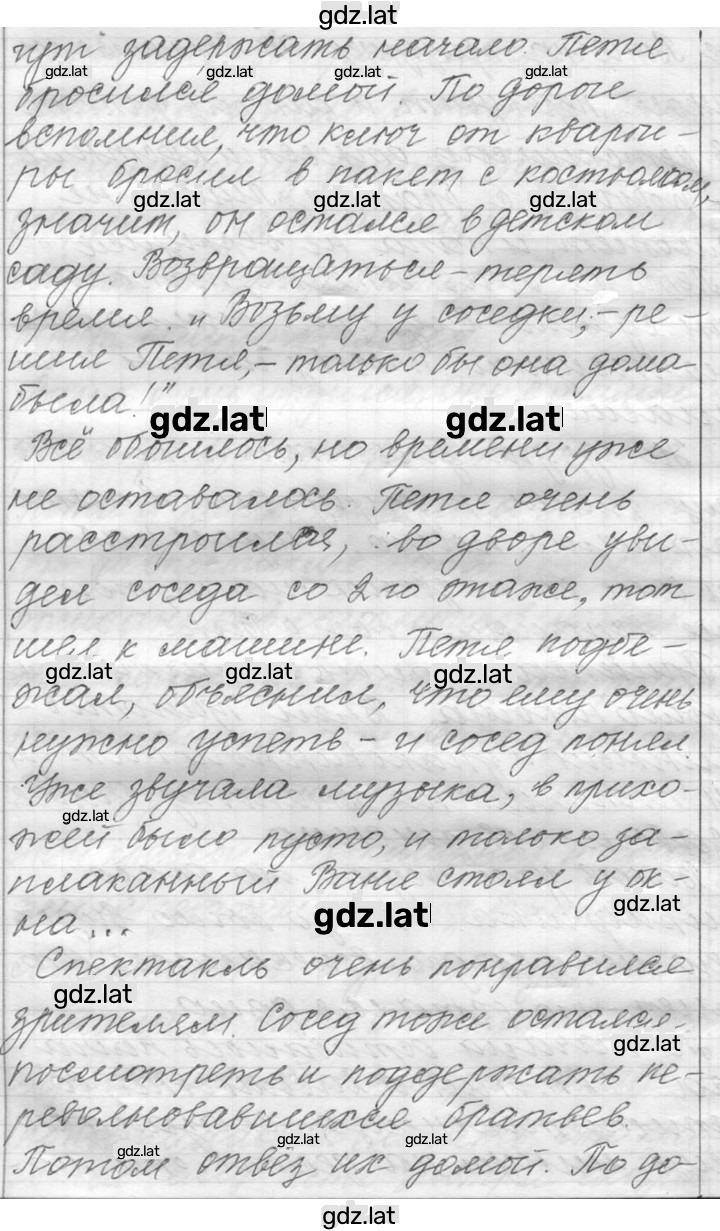 gdz.lat
гут задержать начало. Петя
gdz.lat gdz.lat gdz.lat gdz.lat
бросился домой. По дороге
вспомнил, что ключ от кварти-
ры бросил в пакет с костюмом,
gdz.lat gdz.lat gdz.lat
значит, он остался в детском
саду. Возвращаться – терять
время. „Возьму у соседки, – ре-
шил Петя, – только бы она дома
была!"
gdz.lat gdz.lat
Всё обошлось, но времени уже
не оставалось. Петя очень
расстроился, во дворе уви-
дел соседа со 2 го этажа, тот
шёл к машине. Петя подбе-
gdz.lat gdz.lat gdz.lat
жал, объяснил, что ему очень
нужно успеть – и сосед понял.
Уже звучала музыка, в прихо-
gdz.lat
жей было пусто, и только за-
плаканный Ваня стоял у ок-
gdz.lat
на...
gdz.lat
Спектакль очень понравился
gdz.lat
зрителям. Сосед тоже остался
gdz.lat
посмотреть и поддержать пе-
револновавшихся братьев.
gdz.lat gdz.lat gdz.lat
Потом отвёз их домой. По до-
gdz.lat